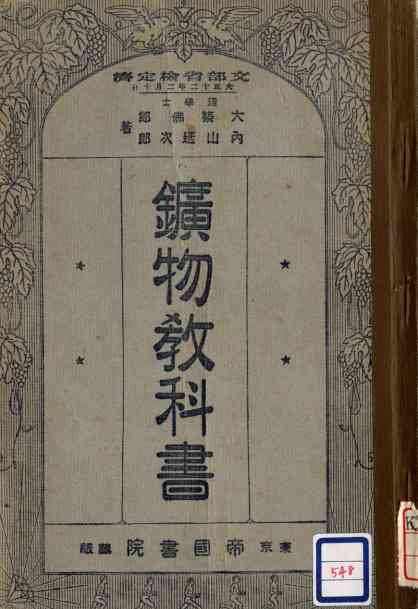 文部省檢定濟
大正十二年二月十日
理學士
大築佛郎
內山 次郎
著
鑛物教科書
東京 帝國書院 藏版
548
K